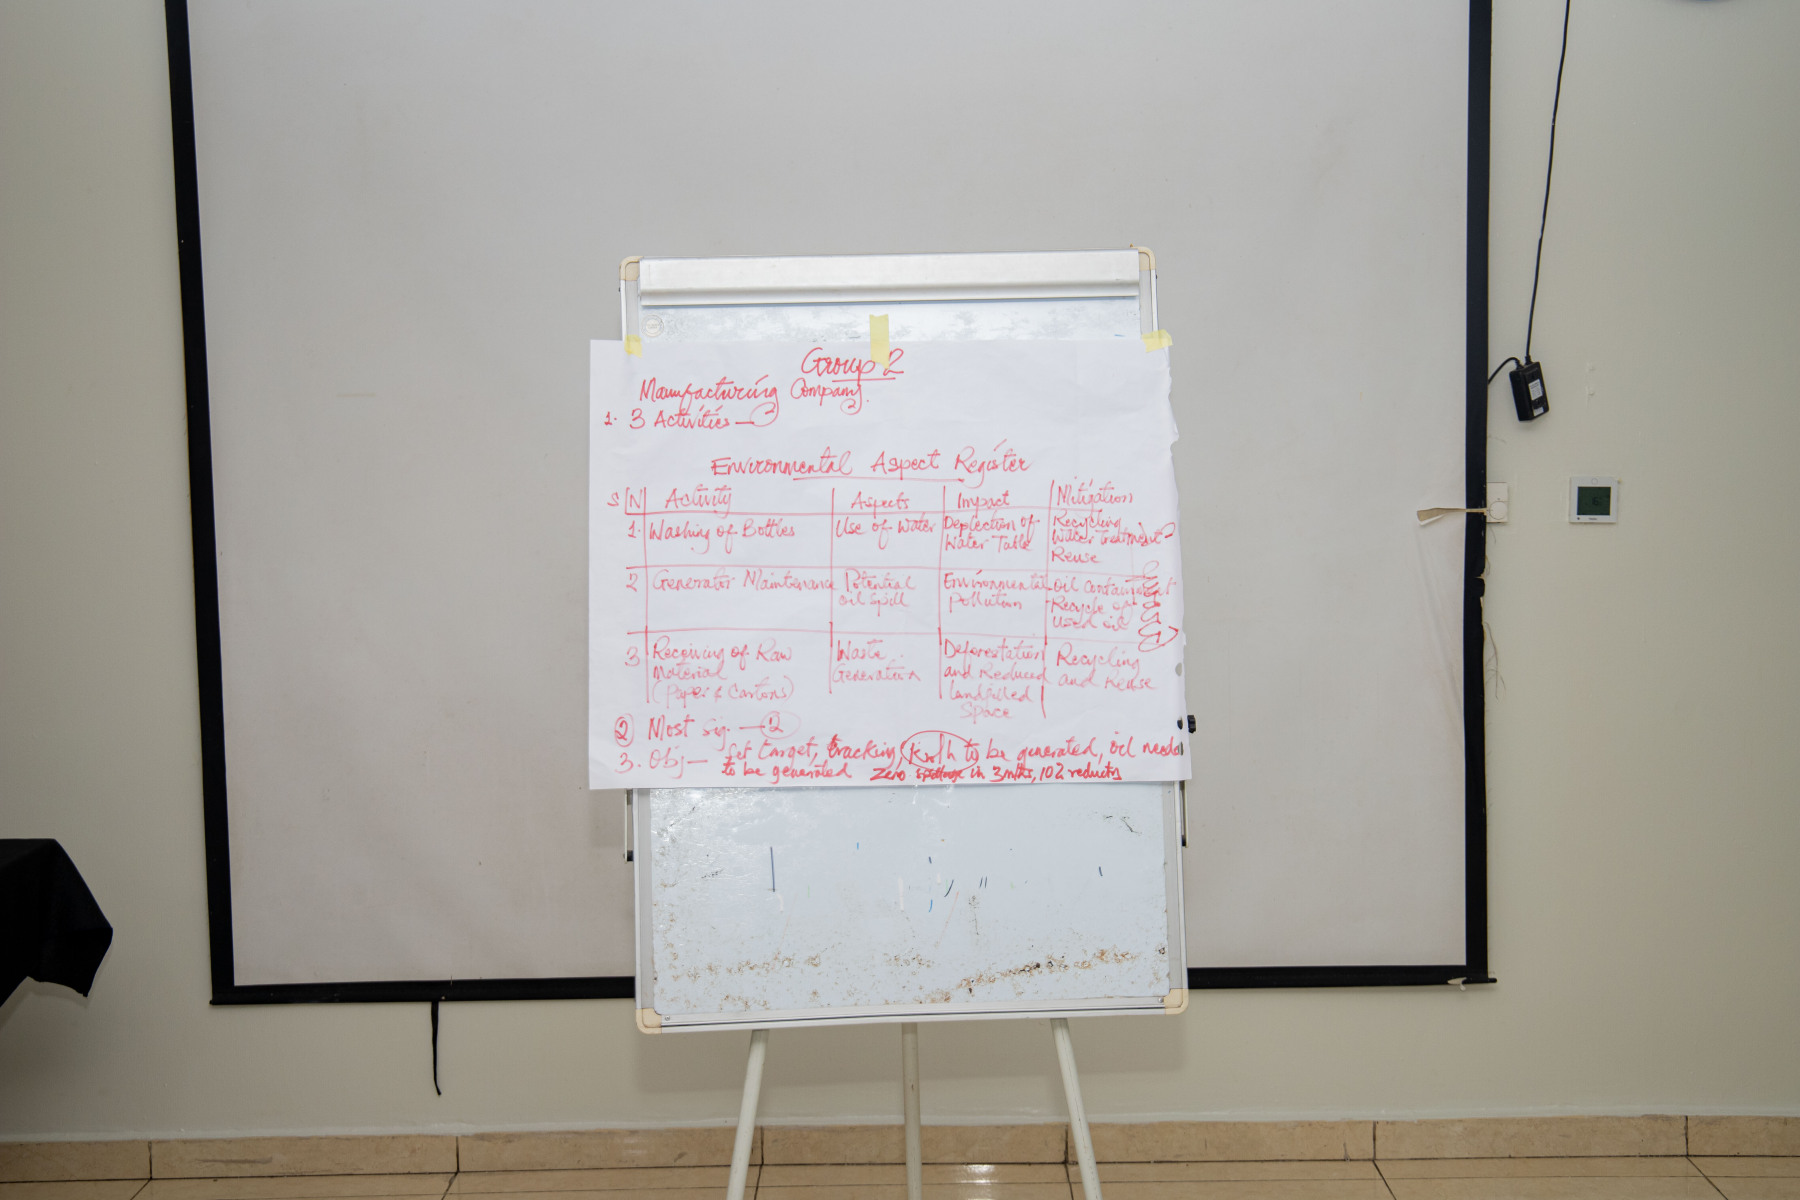 Group 2
Manufacturing Company.
1. 3 Activities —
Environmental Aspect Register
S/N Activity Aspects Impact Mitigation
1. Washing of Bottles Use of Water Deplection of Water Table Recycling Water treatment Reuse
2 Generator Maintenance Potential oil spill Environmental pollution oil containment Recycle of used oil
3 Receiving of Raw Material (Paper & Cartons) Waste Generation Deforestation and Reduced landfilled Space Recycling and Reuse
② Most sig. — ②
3. Obj — Set target, tracking, kw/h to be generated, oil needed
to be generated Zero spillage in 3mths, 10% reductn